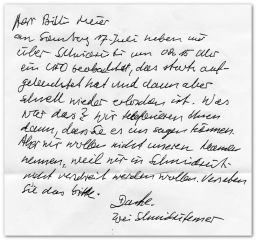 Herr Billi Meier
am Samstag 17. Juli haben wir
über Schmidrüti um 00.15 Uhr
ein UFO beobachtet, das stark auf-
geleuchtet hat und dann aber
schnell wieder erloschen ist. Was
war das? Wir telefonieren Ihnen
dann, dass Sie es uns sagen können.
Aber wir wollen nicht unseren Namen
nennen, weil wir in Schmidrüti
nicht verschreit werden wollen. Verstehen
Sie das bitte.
Danke.
Zwei Schmidrütener